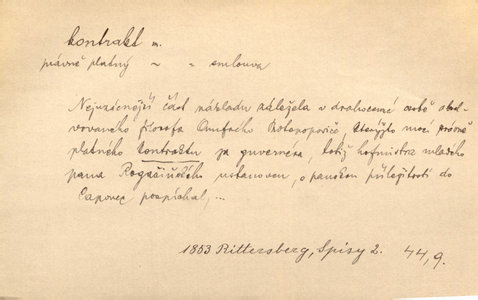 kontrakt m.
právně platný ~ ~ smlouva
Nejvzácnější část nákladu záležela v drahocenné osobě
vovaného filosofa Protopopoviče, kterýžto mocí právně
platného kontraktu za guvernéra, totiž hofmistra mladého
pana ustanoven, s panskou příležitostí do
pospíchal, ...
1853 Rittersberg, Spisy 2. 44,9.